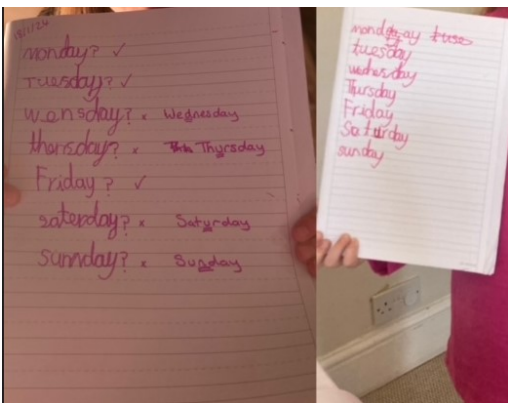 monday? ✓
Tuesday? ✓
wensday? x Wednesday
thersday? x Thursday
Friday? ✓
saterday? x Saturday
sunnday? x Sunday
monday tues
tuesday
wednesday
Thursday
Friday
Saturday
sunday